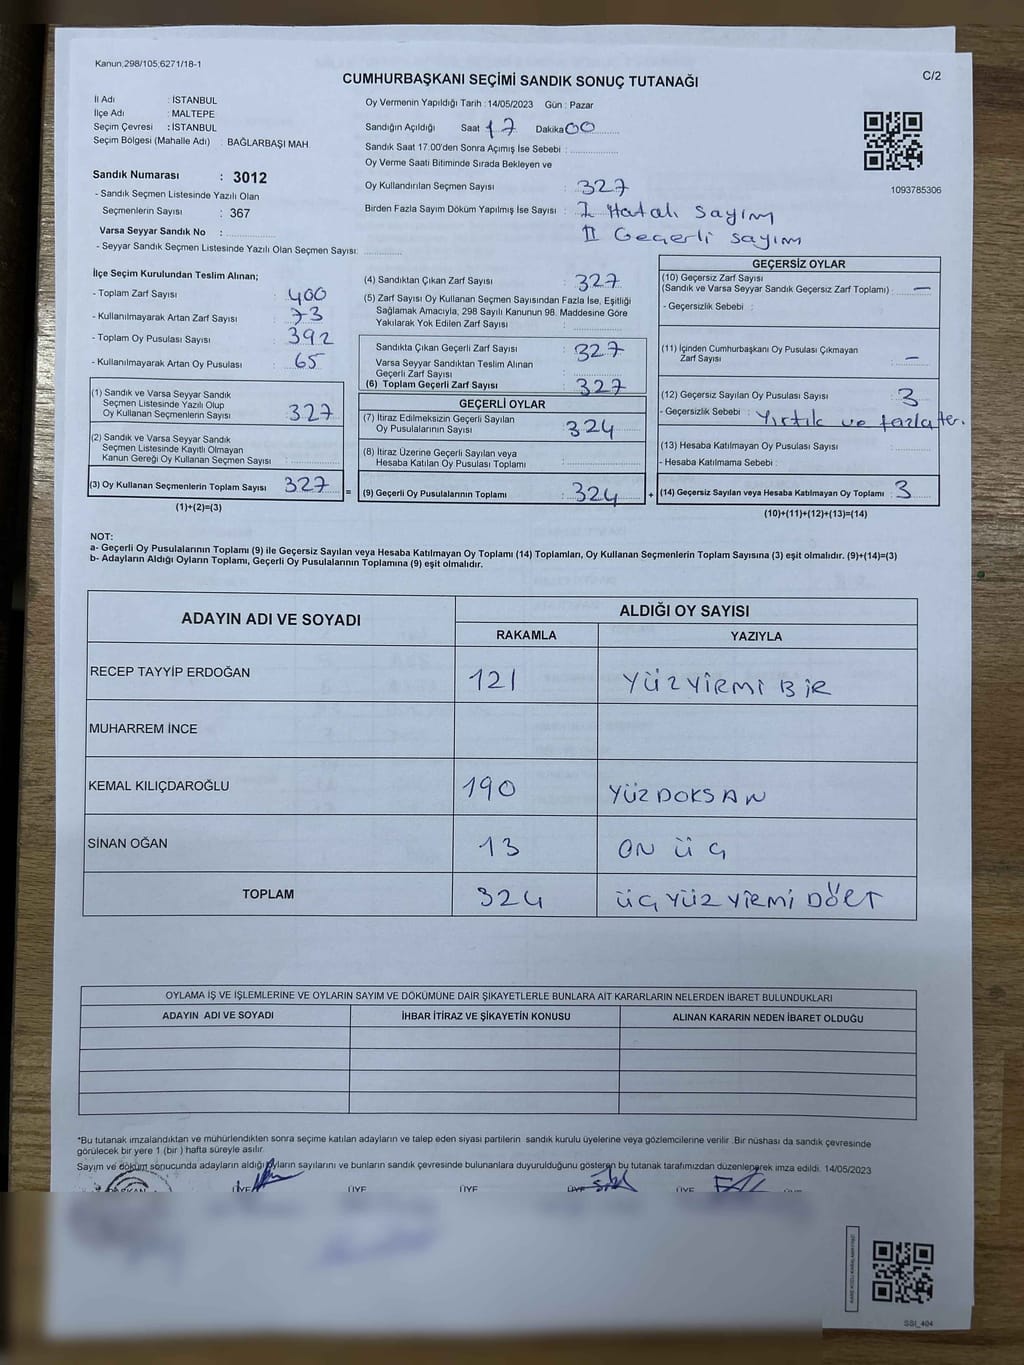 Kanun,298/105,6271/18-1
C/2
CUMHURBAŞKANI SEÇİMİ SANDIK SONUÇ TUTANAĞI
İl Adı : İSTANBUL
İlçe Adı : MALTEPE
Seçim Çevresi : İSTANBUL
Seçim Bölgesi (Mahalle Adı) : BAĞLARBAŞI MAH.
Sandık Numarası : 3012
- Sandık Seçmen Listesinde Yazılı Olan
Seçmenlerin Sayısı : 367
Varsa Seyyar Sandık No :
- Seyyar Sandık Seçmen Listesinde Yazılı Olan Seçmen Sayısı:
Oy Vermenin Yapıldığı Tarih : 14/05/2023 Gün : Pazar
Sandığın Açıldığı Saat 17 Dakika 00
Sandık Saat 17.00'den Sonra Açımış İse Sebebi :
Oy Verme Saati Bitiminde Sırada Bekleyen ve
Oy Kullandırılan Seçmen Sayısı : 327
Birden Fazla Sayım Döküm Yapılmış İse Sayısı : I Hatalı sayım
II Geçerli sayım
1093785306
İlçe Seçim Kurulundan Teslim Alınan;
- Toplam Zarf Sayısı : 400
- Kullanılmayarak Artan Zarf Sayısı : 73
- Toplam Oy Pusulası Sayısı : 392
- Kullanılmayarak Artan Oy Pusulası : 65
(1) Sandık ve Varsa Seyyar Sandık
Seçmen Listesinde Yazılı Olup
Oy Kullanan Seçmenlerin Sayısı : 327
(2) Sandık ve Varsa Seyyar Sandık
Seçmen Listesinde Kayıtlı Olmayan
Kanun Gereği Oy Kullanan Seçmen Sayısı :
(3) Oy Kullanan Seçmenlerin Toplam Sayısı : 327
(1)+(2)=(3)
=
(4) Sandıktan Çıkan Zarf Sayısı : 327
(5) Zarf Sayısı Oy Kullanan Seçmen Sayısından Fazla İse, Eşitliği
Sağlamak Amacıyla, 298 Sayılı Kanunun 98. Maddesine Göre
Yakılarak Yok Edilen Zarf Sayısı :
Sandıkta Çıkan Geçerli Zarf Sayısı : 327
Varsa Seyyar Sandıktan Teslim Alınan
Geçerli Zarf Sayısı :
(6) Toplam Geçerli Zarf Sayısı : 327
GEÇERLİ OYLAR
(7) İtiraz Edilmeksizin Geçerli Sayılan
Oy Pusulalarının Sayısı : 324
(8) İtiraz Üzerine Geçerli Sayılan veya
Hesaba Katılan Oy Pusulası Toplamı :
(9) Geçerli Oy Pusulalarının Toplamı : 324
+
GEÇERSİZ OYLAR
(10) Geçersiz Zarf Sayısı
(Sandık ve Varsa Seyyar Sandık Geçersiz Zarf Toplamı) : —
- Geçersizlik Sebebi :
(11) İçinden Cumhurbaşkanı Oy Pusulası Çıkmayan
Zarf Sayısı : —
(12) Geçersiz Sayılan Oy Pusulası Sayısı : 3
- Geçersizlik Sebebi : Yırtık ve fazla
(13) Hesaba Katılmayan Oy Pusulası Sayısı :
- Hesaba Katılmama Sebebi :
(14) Geçersiz Sayılan veya Hesaba Katılmayan Oy Toplamı : 3
(10)+(11)+(12)+(13)=(14)
NOT:
a- Geçerli Oy Pusulalarının Toplamı (9) ile Geçersiz Sayılan veya Hesaba Katılmayan Oy Toplamı (14) Toplamları, Oy Kullanan Seçmenlerin Toplam Sayısına (3) eşit olmalıdır. (9)+(14)=(3)
b- Adayların Aldığı Oyların Toplamı, Geçerli Oy Pusulalarının Toplamına (9) eşit olmalıdır.
ADAYIN ADI VE SOYADI ALDIĞI OY SAYISI
RAKAMLA YAZIYLA
RECEP TAYYİP ERDOĞAN 121 YÜZYİRMİ BİR
MUHARREM İNCE
KEMAL KILIÇDAROĞLU 190 YÜZDOKSAN
SİNAN OĞAN 13 ON ÜÇ
TOPLAM 324 ÜÇYÜZYİRMİ DÖRT
OYLAMA İŞ VE İŞLEMLERİNE VE OYLARIN SAYIM VE DÖKÜMÜNE DAİR ŞİKAYETLERLE BUNLARA AİT KARARLARIN NELERDEN İBARET BULUNDUKLARI
ADAYIN ADI VE SOYADI İHBAR İTİRAZ VE ŞİKAYETİN KONUSU ALINAN KARARIN NEDEN İBARET OLDUĞU
*Bu tutanak imzalandıktan ve mühürlendikten sonra seçime katılan adayların ve talep eden siyasi partilerin sandık kurulu üyelerine veya gözlemcilerine verilir. Bir nüshası da sandık çevresinde
görülecek bir yere 1 (bir ) hafta süreyle asılır.
Sayım ve döküm sonucunda adayların aldığı oyların sayılarını ve bunların sandık çevresinde bulunanlara duyurulduğunu gösteren bu tutanak tarafımızdan düzenlenerek imza edildi. 14/05/2023
BAŞKAN ÜYE ÜYE ÜYE ÜYE ÜYE ÜYE
SSI_404